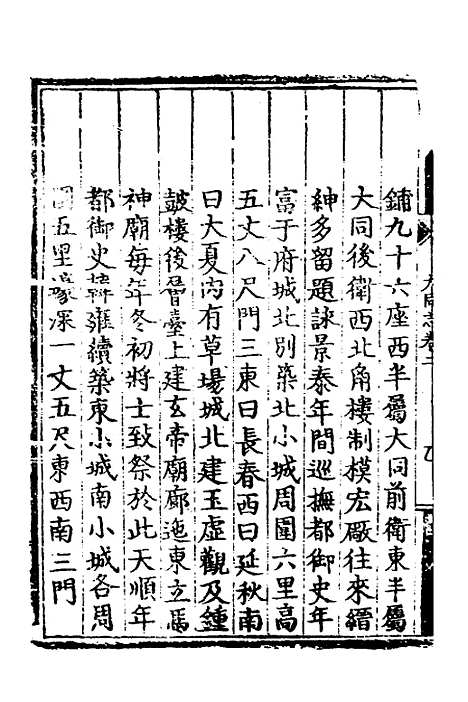 鋪九十六座西半屬大同前衛東半屬
大同後衛西北角樓制模宏厰往來縉
紳多留題詠景泰年間巡撫都御史年
富于府城北別築北小城周圍六里高
五丈八尺門三東曰長春西曰延秋南
曰大夏內有草場城北建玉虛觀及鍾
皷樓後晉臺上建玄帝廟廊迤東立馬
神廟每年冬初將士致祭於此天順年
都御史韓雍續築東小城南小城各周
圍五里壕深一丈五尺東西南三門
大同志卷二